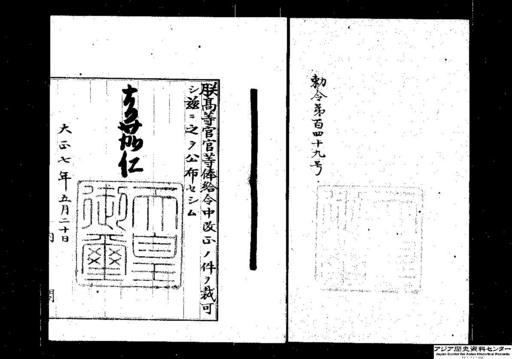 勅令第百四十九号
朕高等官官等俸給令中改正ノ件ヲ裁可
シ茲ニ之ヲ公布セシム
嘉仁
天皇御璽
大正七年五月二十日
内閣
アジア歴史資料センター
Japan Center for Asian Historical Records